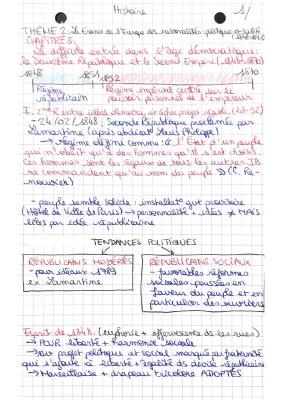 Histoire
1/
THÈME 2: La France ds l'Europe des nationalités: politique et société
1848-1871
CHAPITRE 3:
La difficile entrée dans l'âge démocratique:
la Deuxième République et le Second Empire (1848-1870)
1848 1851 1852 1870
Régime républicain
Régime impérial centré sur le pouvoir personnel de l'empereur
I. 2nde R entre idéal démocra. et projet (48-52)
- 24/02/1848: Seconde République proclamée par
Lamartine (après abdicat° Louis Philippe)
→ régime défini comme: " État d'un peuple
qui n'obéit qu'à des hommes qu'il s'est choisis.
Ces hommes sont les égaux de tous les autres. Ils
ne commandent qu'au nom du peuple " (C. Re-
nouvier)
- peuple semble solide: installat° gvt provisoire
(Hôtel de Ville de Paris) → personnalité + idées ≠ MAIS
liées par idée républicaine
TENDANCES POLITIQUES
RÉPUBLICAINS MODÉRÉS
- pour idéaux 1789
ex: Lamartine
RÉPUBLICAINS SOCIAUX
- favorables réformes
sociales poussées en
faveur du peuple et en
particulier des ouvriers
Esprit de 1848: (euphorie + effervescence ds les rues)
→ POUR liberté + harmonie sociale
→ un projet politique et social marqué par fraternité
qui s'ajoute à liberté + égalité ds devise républicaine
→ Marseillaise + drapeau tricolore ADOPTÉS